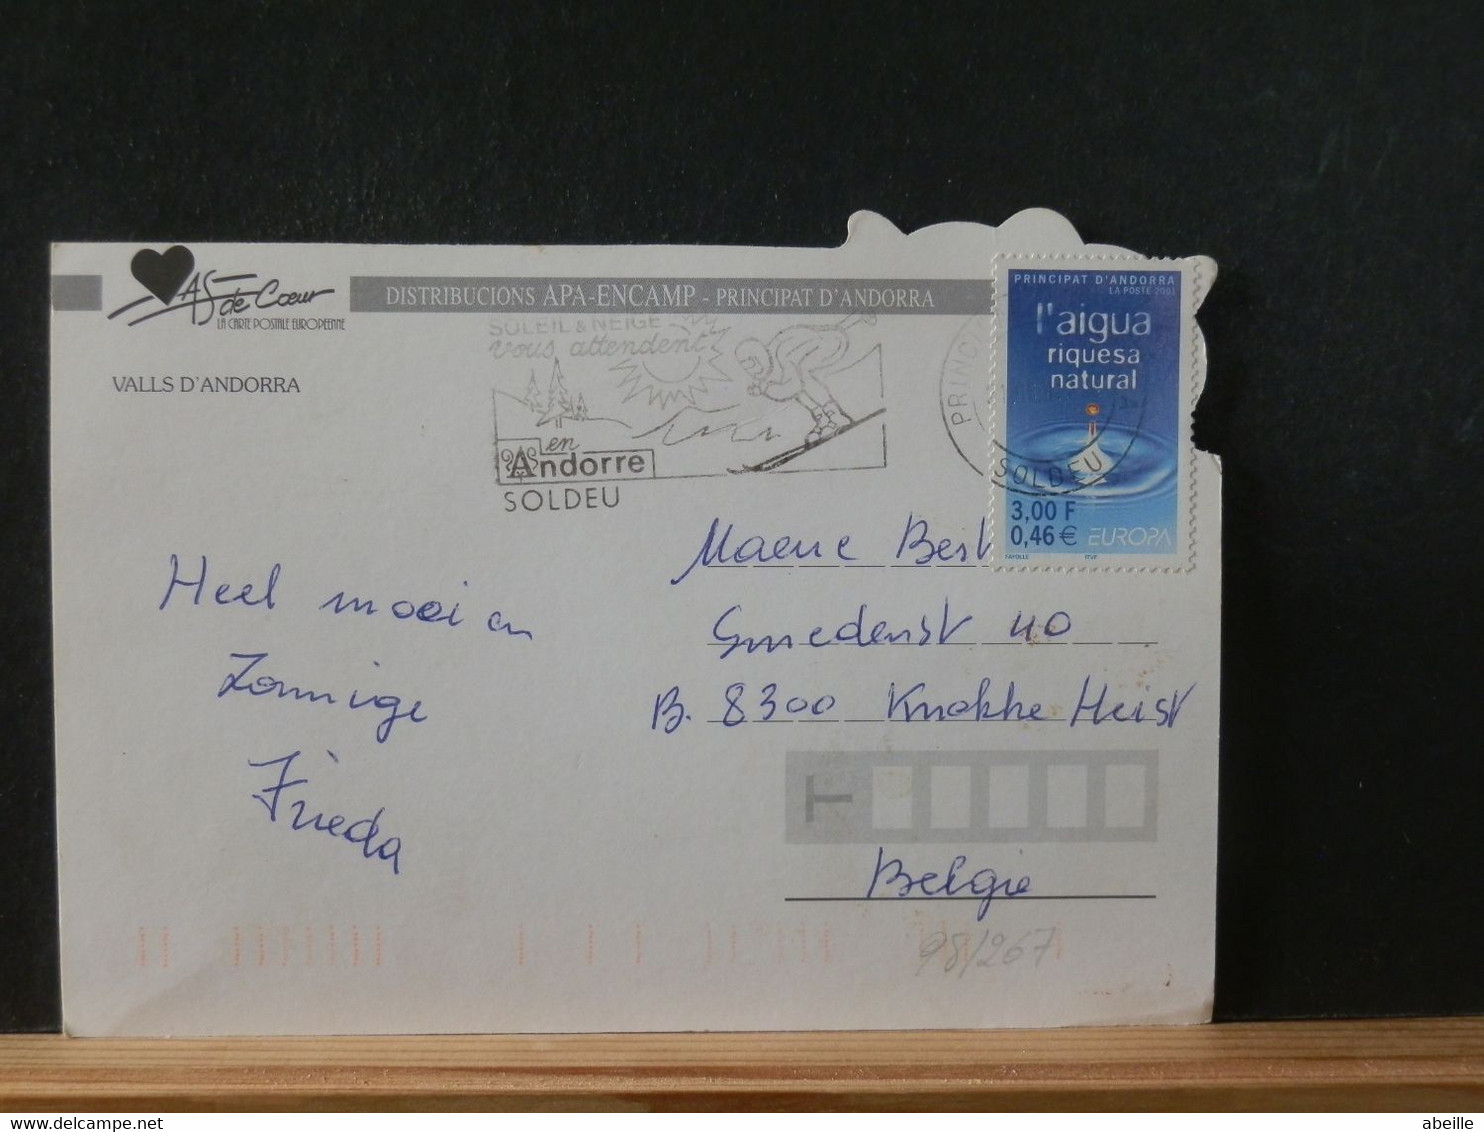 AS de Cœur
LA CARTE POSTALE EUROPEENNE
DISTRIBUCIONS APA-ENCAMP - PRINCIPAT D'ANDORRA
VALLS D'ANDORRA
SOLEIL & NEIGE
vous attendent
en
Andorre
SOLDEU
PRINCI
SOLDEU
PRINCIPAT D'ANDORRA
LA POSTE 2001
l'aigua
riquesa
natural
3,00 F
0,46 €
EUROPA
FAYOLLE ITVF
Heel mooi en
Zonnige
Frieda
Maene Best
Smedenst 40
B. 8300 Knokke Heist
T
België
98/267
abeille